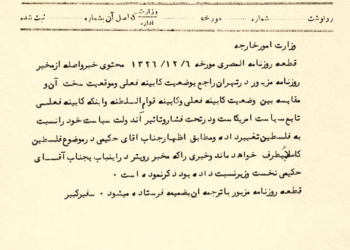 رونوشت شماره مورخه وزارت اداره اصل آن بشماره ثبت شده
وزارت امورخارجه
قطعه روزنامه المصری مورخه ۱۳۲۶/۱۲/۶ محتوی خبرواصله ازمخبر
روزنامه مزبور درتهران راجع بوضعیت کابینه فعلی وموقعیت سخت آن و
مقایسه بین وضعیت کابینه فعلی وکابینه قوام السلطنه واینکه کابینه فعلی
تابع سیاست امریکاست ودرتحت فشاروتاثیر آند ولت سیاست خود رانسبت
به فلسطین تغییرداده ومطابق اظهارجناب اقای حکیمی درموضوع فلسطین
کاملا بیطرف خواهدماند وخبری راکه مخبر رویتر دراینباب بجناب آقسای
حکیمی نخست وزیرنسبت داده بود ذکرنموده است .
قطعه روزنامه مزبور باترجمه آن بضمیمه فرستاده میشود . سفیرکبیر